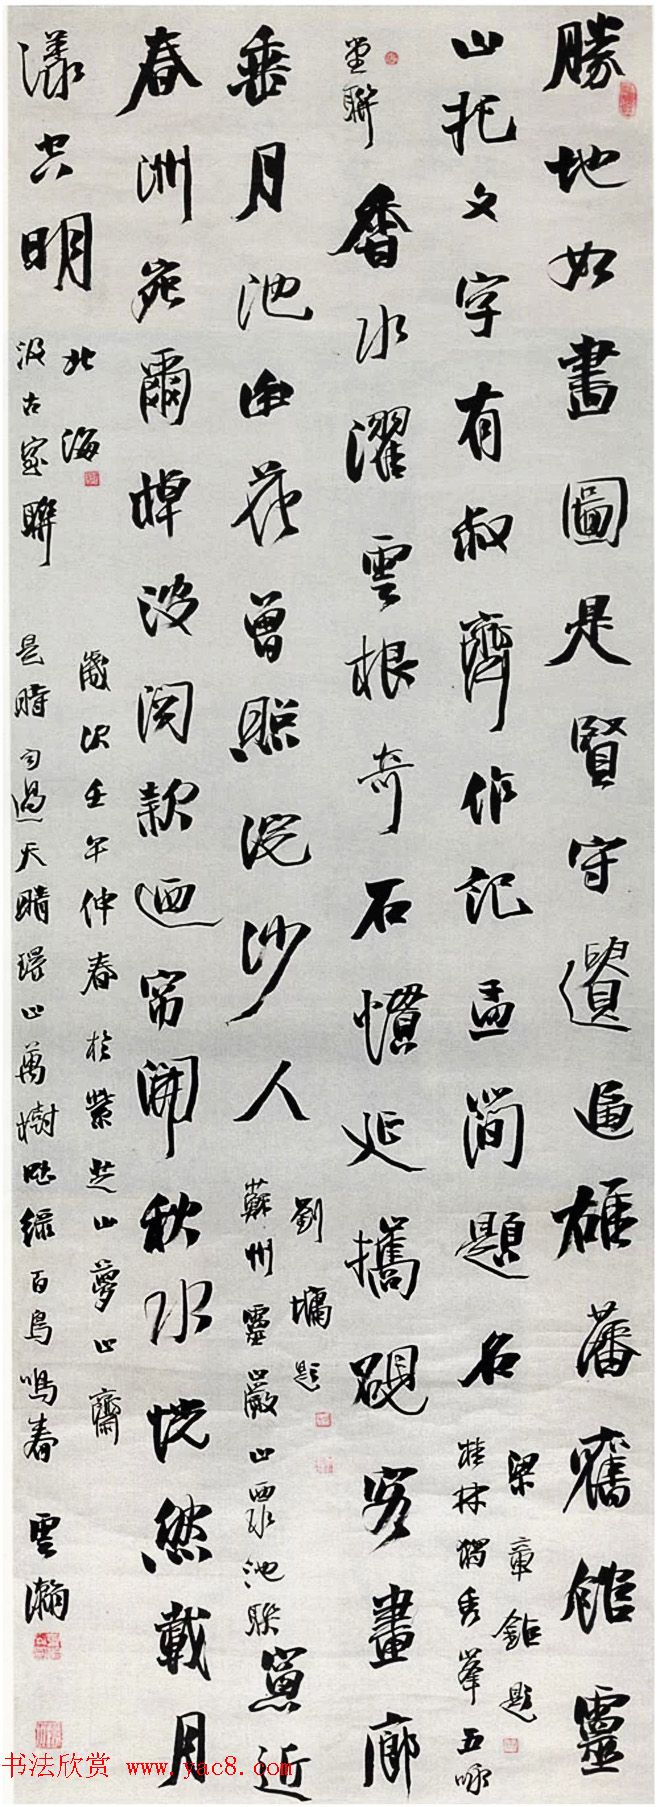 勝地如畫圖是賢守遺區雄藩舊館靈
山托文字有叔齊作記孟簡題名
梁章鉅題
桂林獨秀峯五咏
堂聯
香水濯雲根奇石慣延攜硯客畫廊
垂月池幽花曾照浣沙人
劉墉題
蘇州靈巖山池聯
窗近
春洲宛爾棹波閑款迺帘開秋水恍然載月
漾空明
北海
汲古家聯
歲次壬午仲春於紫芝山夢山齋
是時雨過天晴環山萬樹吐綠百鳥鳴春
雲瀚
书法欣赏 www.yac8.com